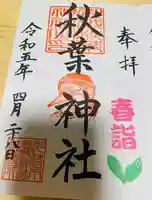 奉拝
春詣
秋葉神社
令和五年
四月二十八日